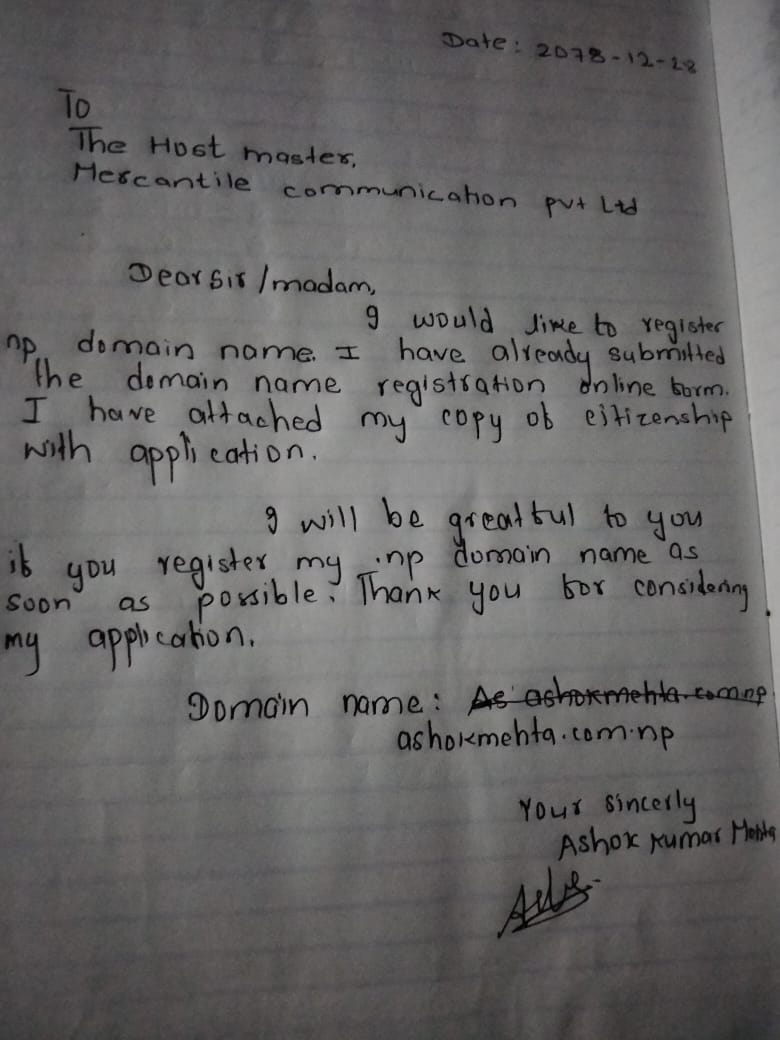 Date: 2078-12-28
To
The Host master,
Mercantile communication pvt Ltd
Dear sir/madam,
I would like to register
np domain name. I have already submitted
the domain name registration online form.
I have attached my copy of citizenship
with application.
I will be greatful to you
if you register my .np domain name as
soon as possible. Thank you for considering
my application.
Domain name: As ashokmehta.com.np
ashokmehta.com.np
Your sincerly
Ashok Kumar Mehta